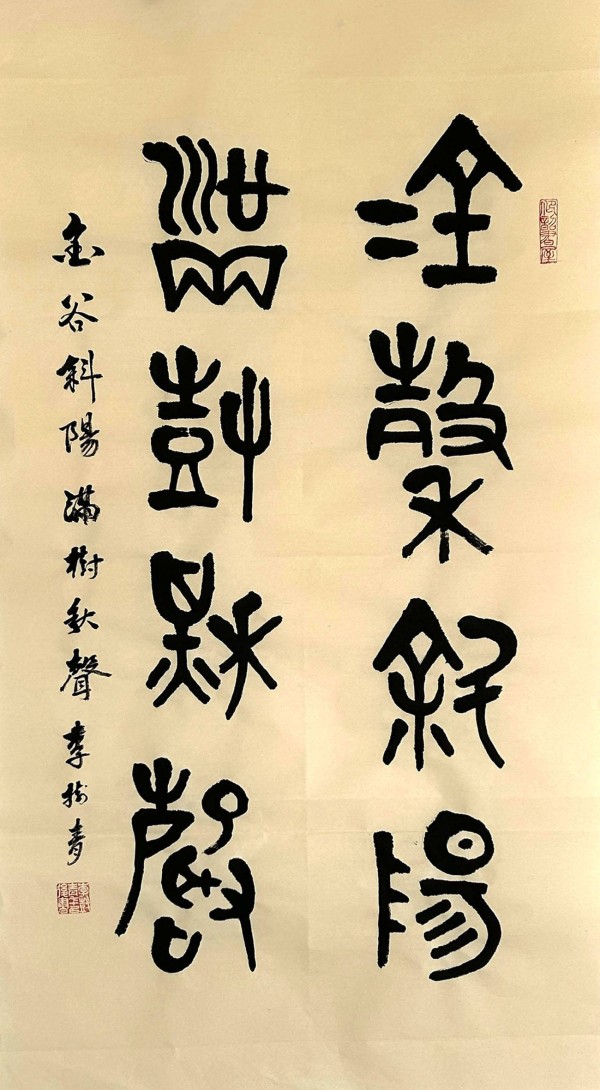 金穀斜陽
滿樹秋聲
金谷斜陽滿樹秋聲 李樹青